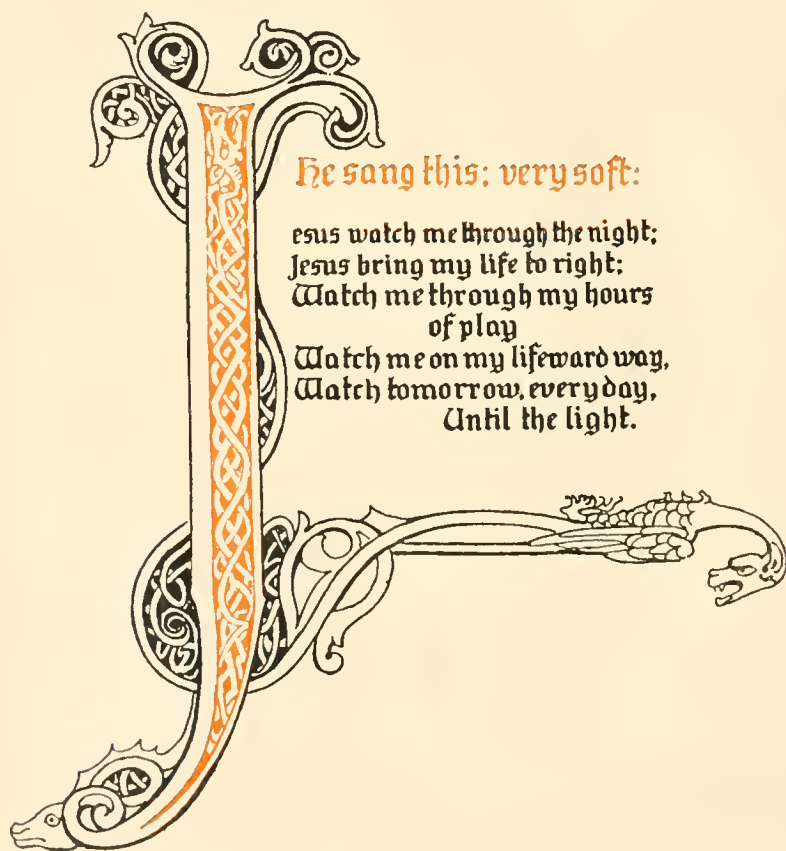 He sang this: very soft:
Jesus watch me through the night;
Jesus bring my life to right;
Watch me through my hours
of play
Watch me on my lifeward way,
Watch tomorrow, every day,
Until the light.